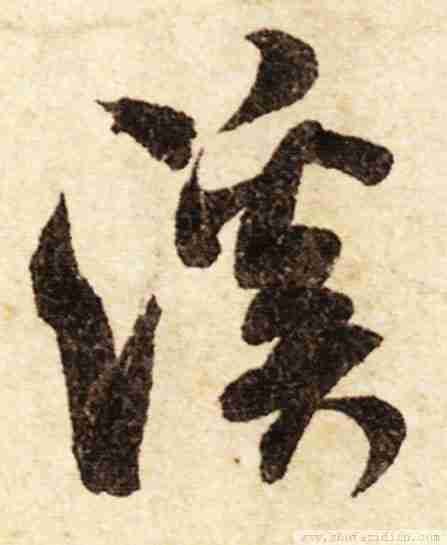 溪
www.shufazidian.com